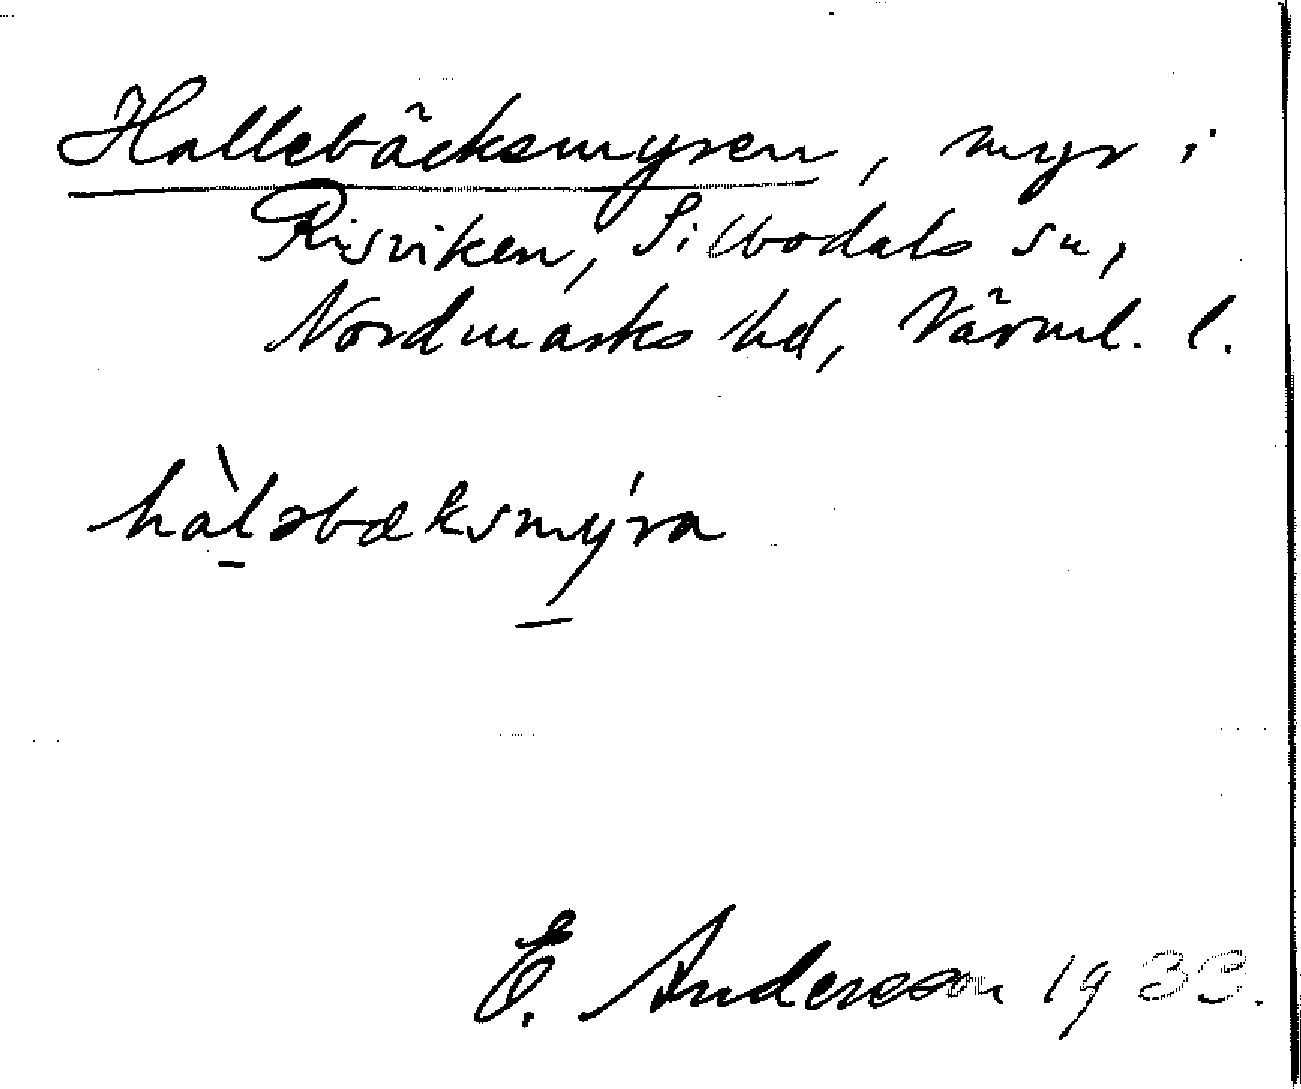 Hallebäcksmyren, myr i
Risviken, Silbodals sn,
Nordmarks hd, Värml. l.
hàl̠əbæksmý̠ra
E. Andersson 1933.